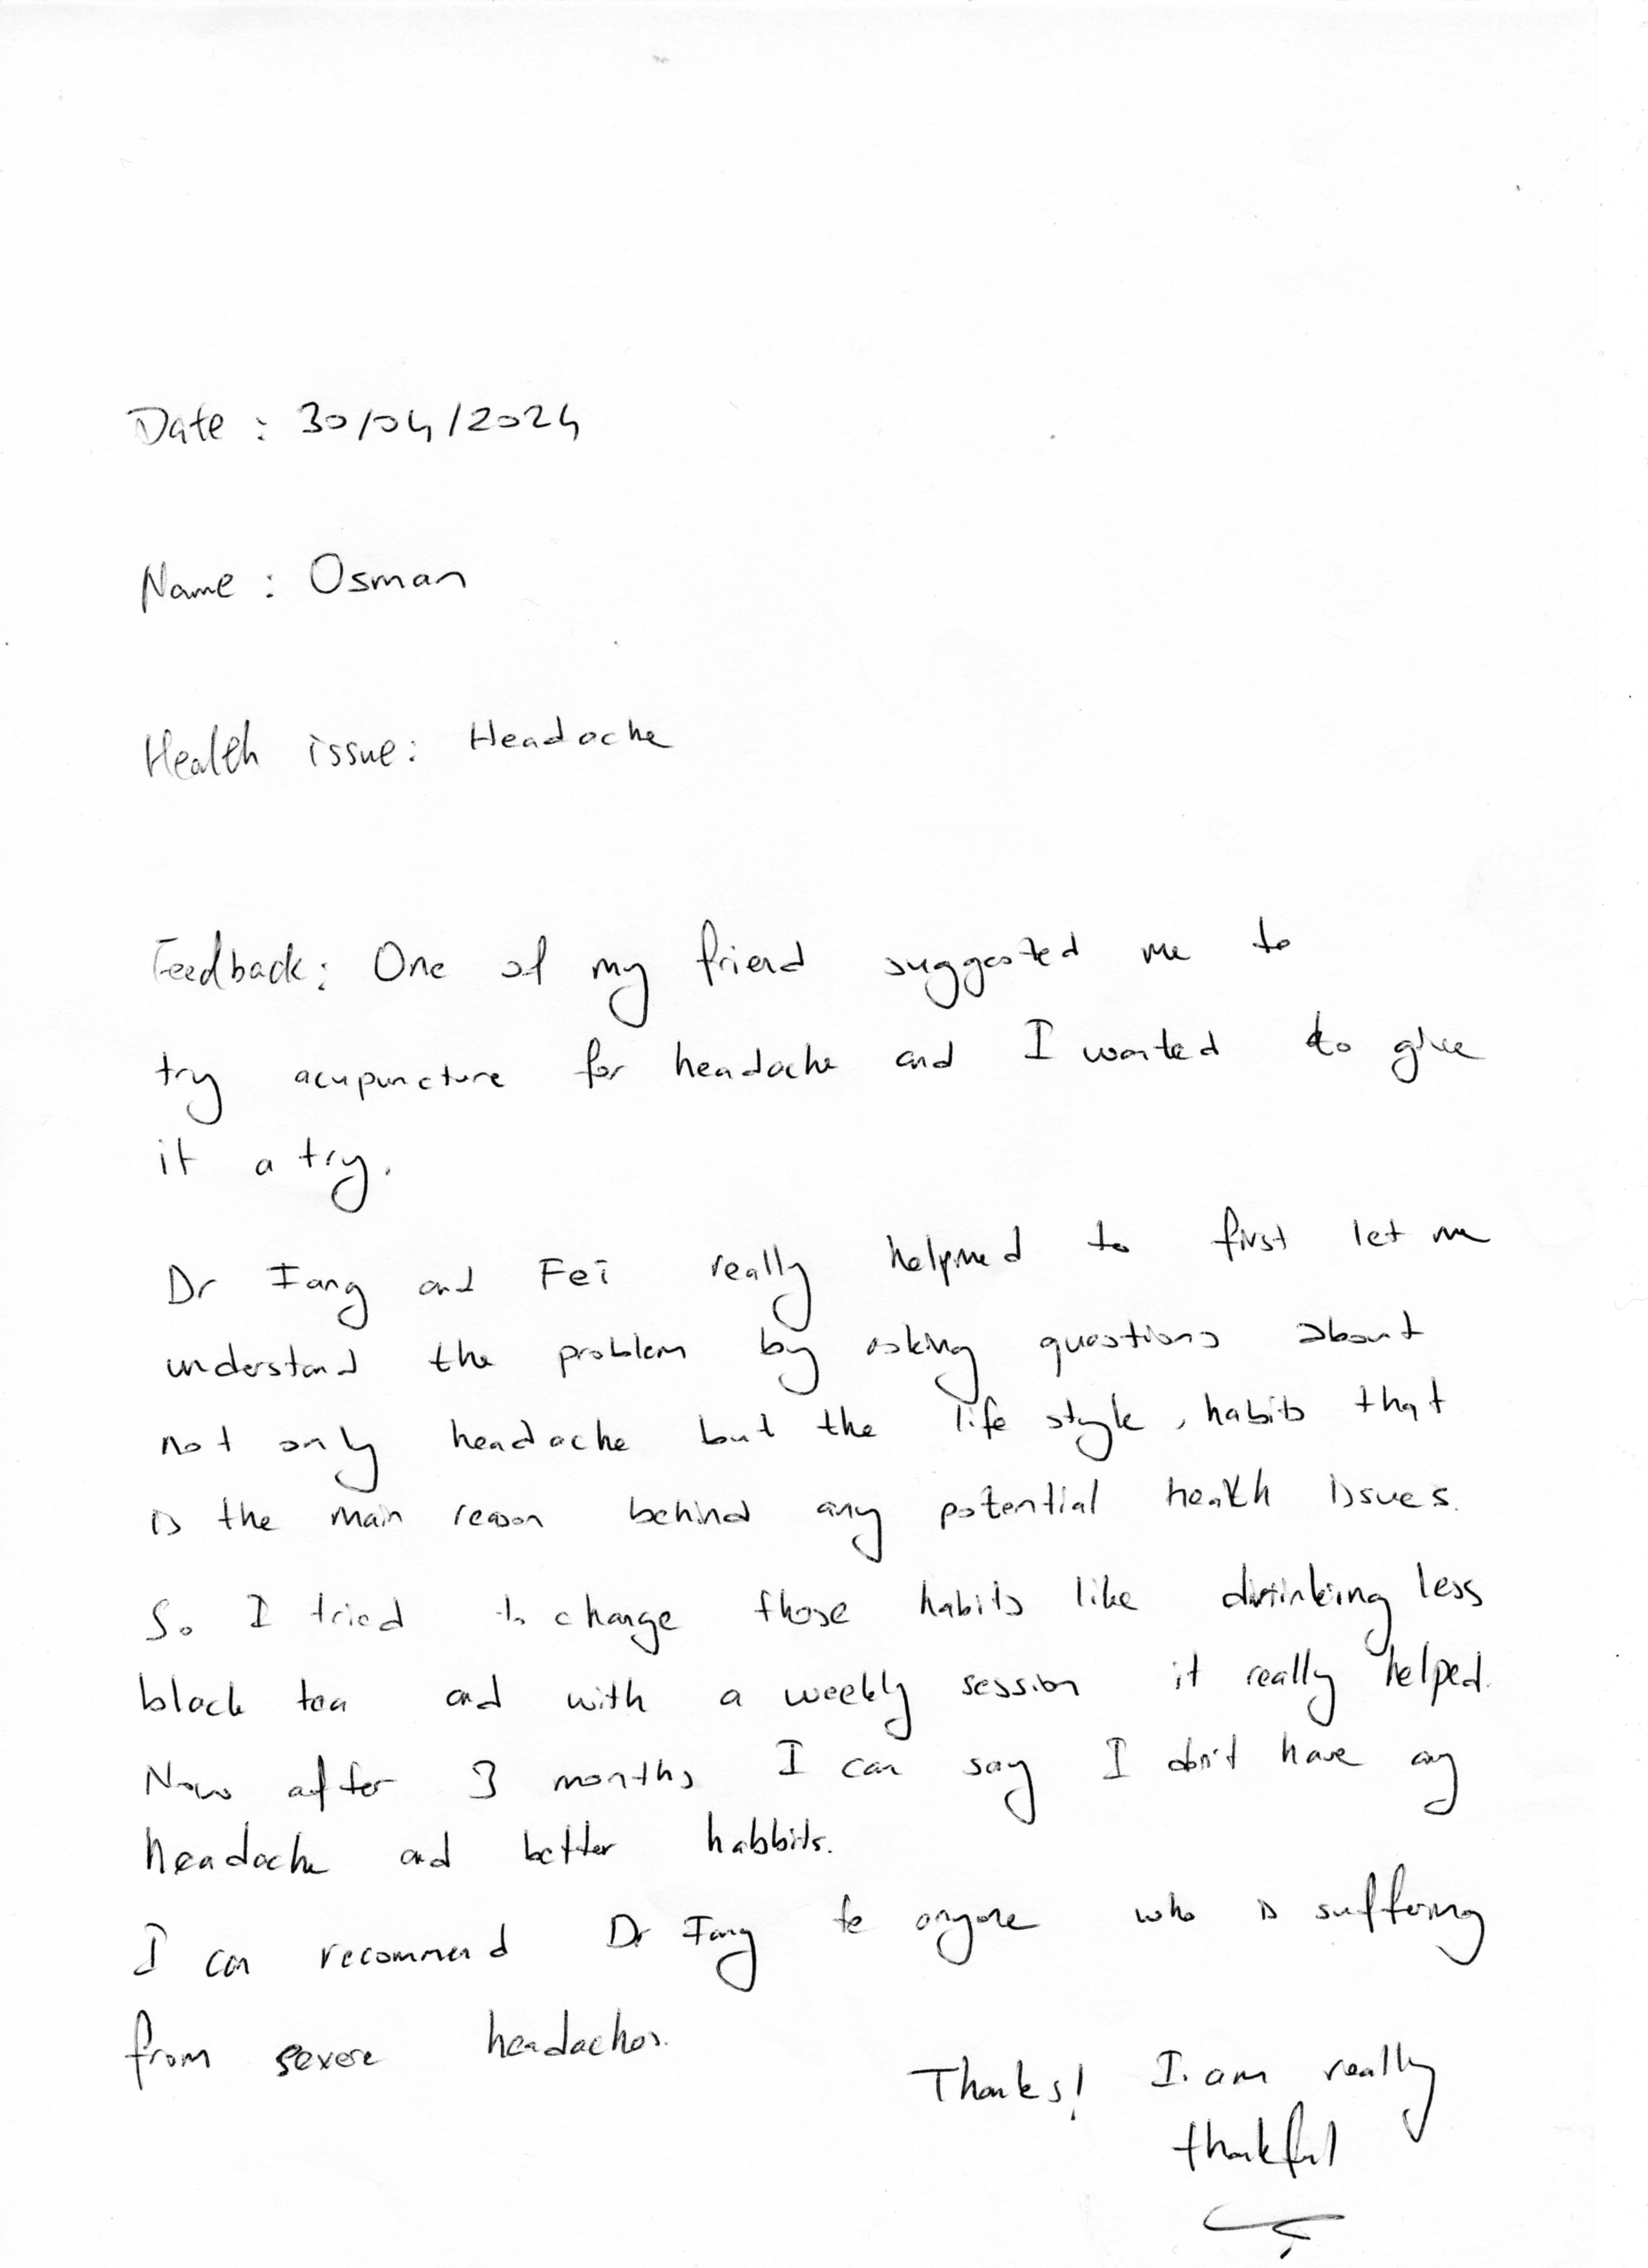 Date : 30/04/2024
Name : Osman
Health issue: Headache
Feedback: One of my friend suggested me to
try acupuncture for headache and I wanted to give
it a try.
Dr Fang and Fei really helped to first let me
understand the problem by asking questions about
not only headache but the life style, habits that
is the main reason behind any potential health issues.
So I tried to change those habits like drinking less
black tea and with a weekly session it really helped.
Now after 3 months I can say I don't have any
headache and better habbits.
I can recommend Dr Fang to anyone who is suffering
from severe headaches.
Thanks! I am really
thankful